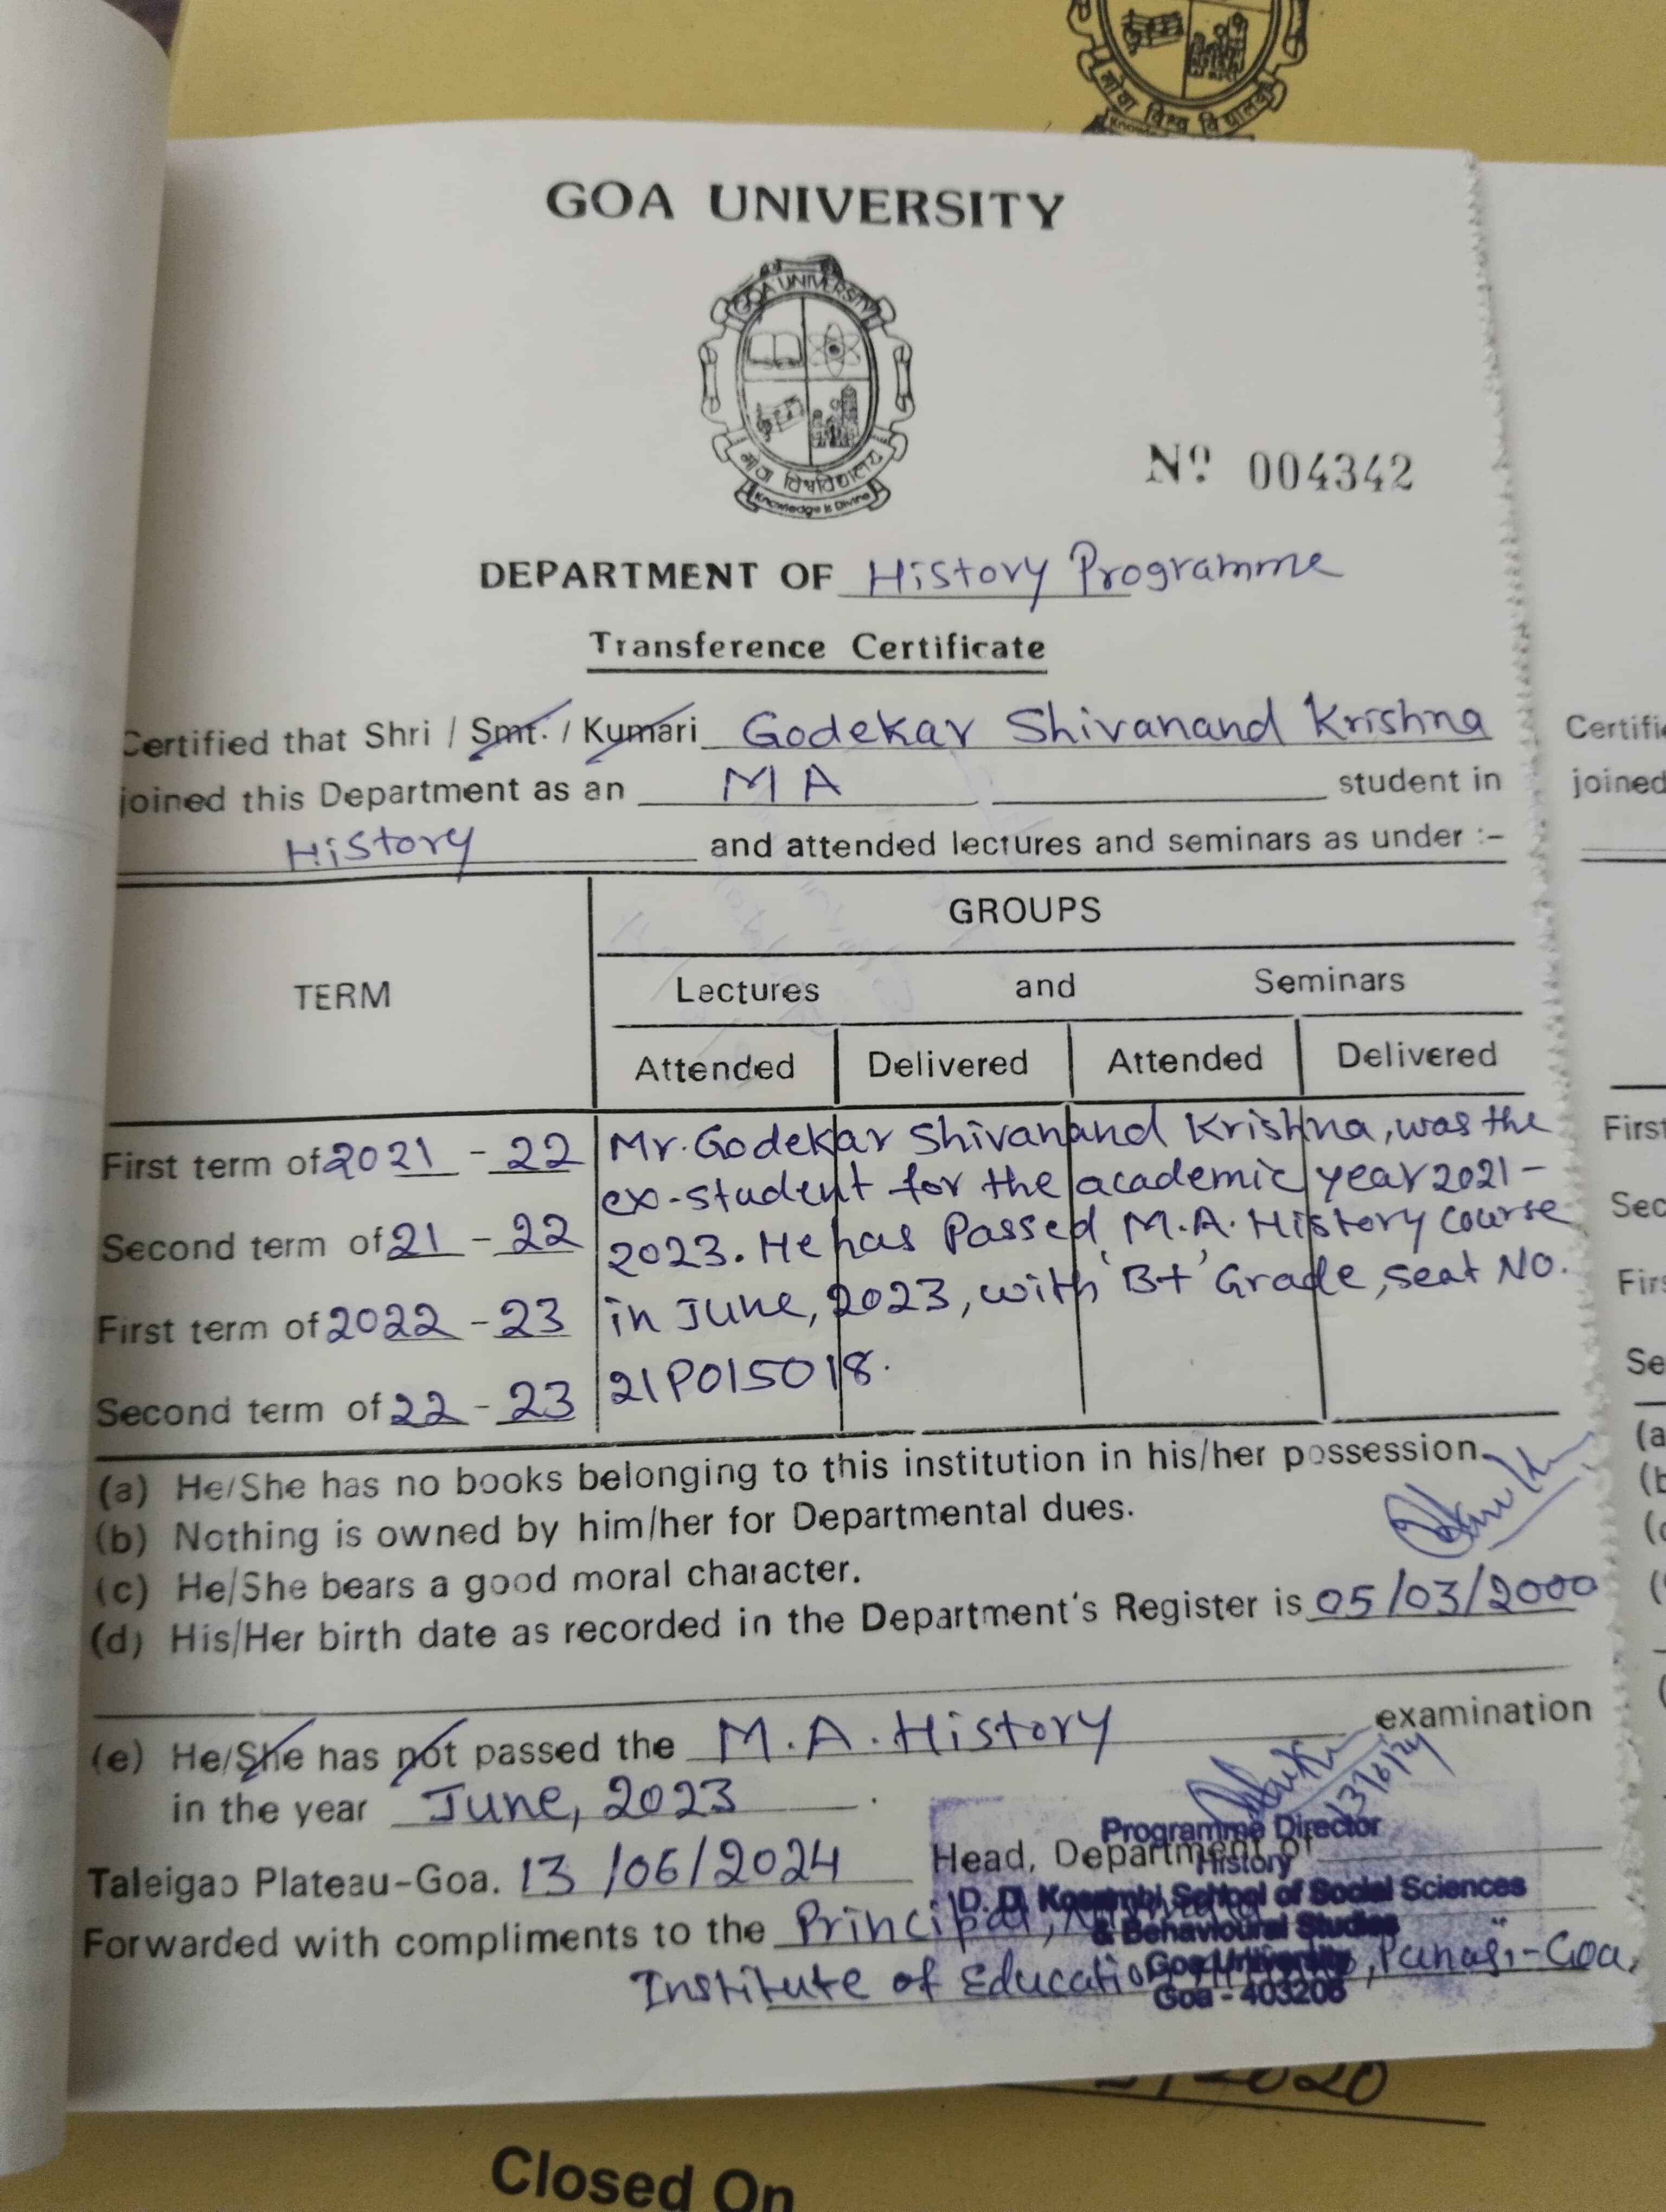 गोवा विश्व विद्यालय
GOA UNIVERSITY
GOA UNIVERSITY
गोंय विश्वविद्यालय
Knowledge is Divine
Nº 004342
DEPARTMENT OF History Programme
Transference Certificate
Certified that Shri / Smt. / Kumari Godekar Shivanand Krishna
joined this Department as an M A student in
History and attended lectures and seminars as under :-
TERM
GROUPS
Lectures and Seminars
Attended Delivered Attended Delivered
First term of 2021 - 22
Second term of 21 - 22
First term of 2022 - 23
Second term of 22 - 23
Mr. Godekar Shivanand Krishna, was the
ex-student for the academic year 2021-
2023. He has Passed M.A. History course
in June, 2023, with 'B+' Grade, seat No.
21P015018.
(a) He/She has no books belonging to this institution in his/her possession.
(b) Nothing is owned by him/her for Departmental dues.
(c) He/She bears a good moral character.
(d) His/Her birth date as recorded in the Department's Register is 05/03/2000
(e) He/She has not passed the M.A. History examination
in the year June, 2023.
13/6/24
Taleigao Plateau-Goa. 13/06/2024 Head, Department of
Programme Director
History
D. D. Kosambi School of Social Sciences
& Behavioural Studies
Goa University
Goa - 403206
Forwarded with compliments to the Principal,
Institute of Education, Panaji-Goa.
Certifi
joined
First
Sec
Firs
Se
(a
2020
Closed On